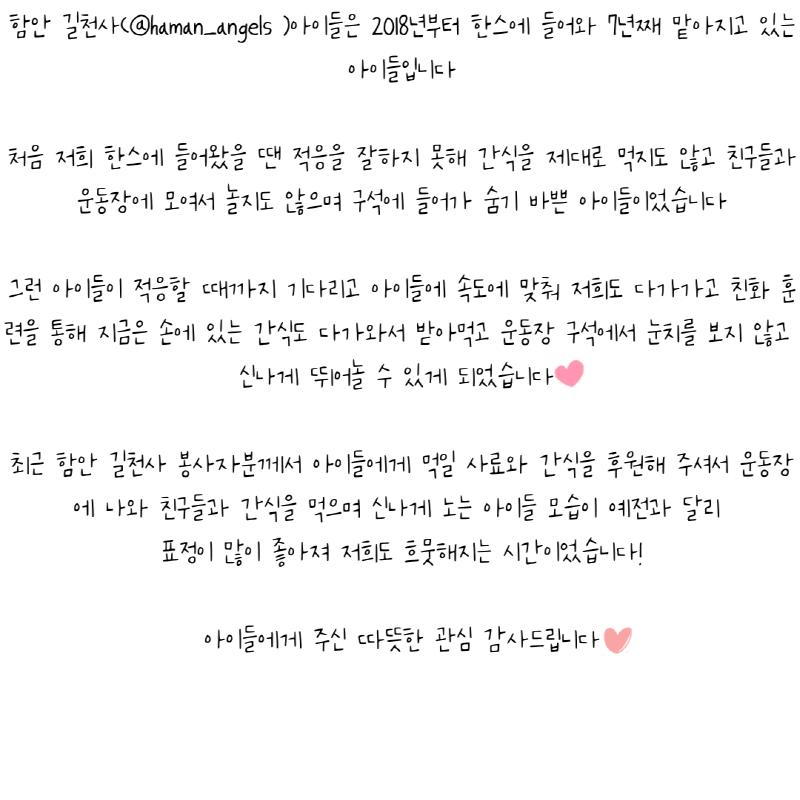 함안 길천사(@haman_angels )아이들은 2018년부터 한스에 들어와 7년째 맡아지고 있는
아이들입니다
처음 저희 한스에 들어왔을 땐 적응을 잘하지 못해 간식을 제대로 먹지도 않고 친구들과
운동장에 모여서 놀지도 않으며 구석에 들어가 숨기 바쁜 아이들이었습니다
그런 아이들이 적응할 때까지 기다리고 아이들에 속도에 맞춰 저희도 다가가고 친화 훈
련을 통해 지금은 손에 있는 간식도 다가와서 받아먹고 운동장 구석에서 눈치를 보지 않고
신나게 뛰어놀 수 있게 되었습니다
최근 함안 길천사 봉사자분께서 아이들에게 먹일 사료와 간식을 후원해 주셔서 운동장
에 나와 친구들과 간식을 먹으며 신나게 노는 아이들 모습이 예전과 달리
표정이 많이 좋아져 저희도 흐뭇해지는 시간이었습니다!
아이들에게 주신 따뜻한 관심 감사드립니다